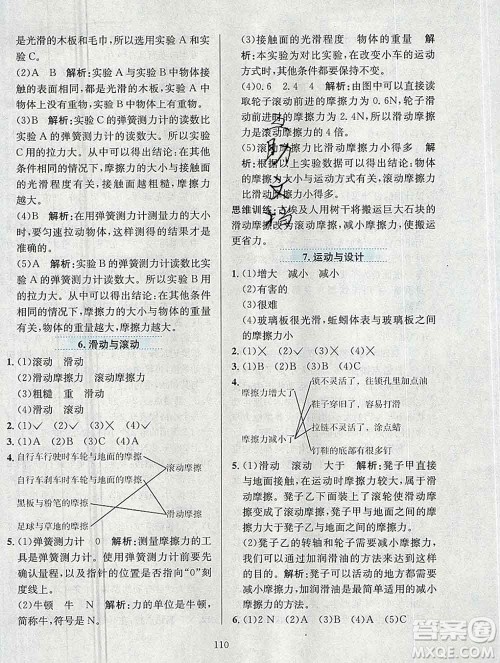 是光滑的木板和毛巾，所以选实验 A 和实
验 C。
(2)A　B　解析：实验 A 与实验 B 中物体接
触的表面相同，都是光滑的木板，不同的是
物体的重量。
(3)A　C　解析：实验 C 的弹簧测力计读数
比实验 A 的弹簧测力计读数大，所以实验
C 用的拉力大。由此可以得出结论：在物体
重量相同的情况下，摩擦力的大小与接触面
的光滑程度有关，接触面越粗糙，摩擦力
越大。
(4)B　解析：在用弹簧测力计测量力的大小
时，要匀速拉动物体，因为匀速拉动物体时
弹簧测力计的读数更准确。
(5)A　解析：实验 B 的弹簧测力计读数比实
验 A 的弹簧测力计读数大，所以实验 B 用
的拉力大。由此可以得出结论：在接触面的
光滑程度相同的情况下，摩擦力的大小与物
体的重量有关，物体的重量越大，摩擦力
越大。
6.滑动与滚动
1.(1)滚动　滑动
(2)滑动摩擦力　滚动摩擦力
(3)粗糙　重　滑动
2.✓✓✓✓
3.(1)A　(2)B　(3)A　(4)A
4.
自行车行驶时车轮与地面的摩擦
自行车刹车时车轮与地面的摩擦
黑板与粉笔的摩擦
足球与草地的摩擦
滚动摩擦
滑动摩擦
5.(1)弹簧测力计　0　解析：测量摩擦力的工
具是弹簧测力计。在使用弹簧测力计前要先
确认量程，以及指针的位置是否在“0”刻
度线。
(2)牛顿　牛　N　解析：力的单位是牛顿，
简称牛，符号是 N。
(3)接触面的光滑程度　物体的重量　解
析：本实验为对比实验，在改变小车的运动
方式时，其他条件要保持不变。
(4)0.6　2.4　4　解析：由图我们可以直接
读取轮子滚动的摩擦力为 0.6N，轮子滑
动的摩擦力为 2.4N，所以轮子滑动的摩
擦力是滚动摩擦力的 4 倍。
(5)滚动摩擦力比滑动摩擦力小得多　解
析：根据以上实验，我们知道，滚动摩擦力
比滑动摩擦力小得多。
思维训练：古埃及人用树干将搬运巨大石块的
滑动摩擦变成了滚动摩擦，减小了摩擦力，使搬运
更省力。
7.运动与设计
1.(1)增大　减小　减小
(2)有害的
(3)很难
(4)玻璃板很光滑，蚯蚓体表与玻璃板之间
的摩擦力小
2.(1)✕　(2)✓　(3)✕　(4)✕
3.(1)B　(2)C　(3)A　(4)C
4.
摩擦力增大了
摩擦力减小了
锁不灵活了，往锁孔里加油
鞋子穿旧了，容易打滑
拉链不灵活了，涂点蜡
钉鞋的底部有很多钉
5.(1)滑动　滚动　大于　解析：凳子甲直接
与地面接触，在运动时与地面之间的摩擦
是滑动摩擦。凳子乙在脚上装上了滚轮使滑
动摩擦变成了滚动摩擦。凳子甲与地面的
摩擦力大于凳子乙与地面的摩擦力。
(2)凳子乙的转轴和轮子　滚动　加润滑
油　解析：在凳子乙需要灵活运动的地方都
需要减小摩擦力，如转轴和轮子的地方需要
减小摩擦，加润滑油是减小摩擦力的方法。
6.(1)A　(2)B　(3)A　(4)A　(5)C
110
答案圈
MXQE.COM